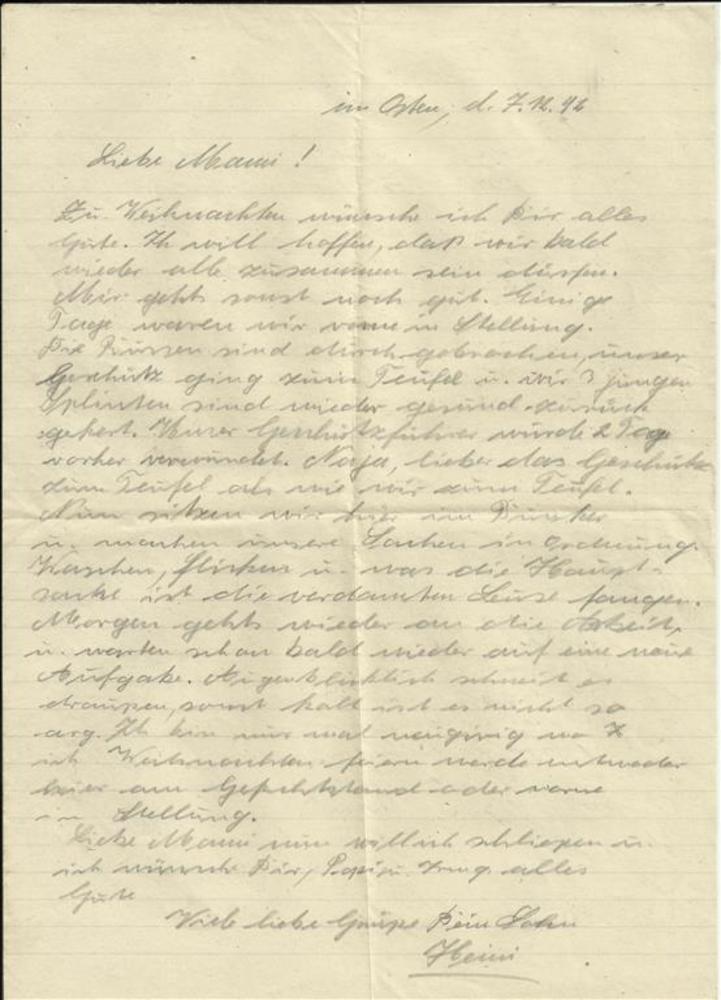 im Osten, d. 7.12.42
Liebe Mami!
Zu Weihnachten wünsche ich Dir alles
Gute. Ich will hoffen, daß wir bald
wieder alle zusammen sein dürfen.
Mir gehts sonst noch gut. Einige
Tage waren wir vorne in Stellung.
Die Russen sind durchgebrochen, unser
Geschütz ging zum Teufel u. wir 3 jungen
Splinten sind wieder gesund zurück
gekert. Unser Geschützführer wurde 2 Tage
vorher verwundet. Naja, lieber das Geschütz
zum Teufel als wie wir zum Teufel.
Nun sitzen wir hier im Bunker
u. machen unsere Sachen in Ordnung.
Waschen, flicken u. was die Haupt-
sache ist die verdammten Leuse fangen.
Morgen gehts wieder an die Arbeit,
u. warten schon bald wieder auf eine neue
Aufgabe. Augenblicklich schneit es
draußen, sonst kalt ist es nicht so
arg. Ich bin nur mal neugirig wo
ich Weihnachten feiern werde entweder
hier am Gefechtstand oder vorne
in Stellung.
Liebe Mami nun will ich schließen u.
ich wünsche Dir, Papi u. alles
Gute
Viele liebe Grüße Dein Sohn
Heini